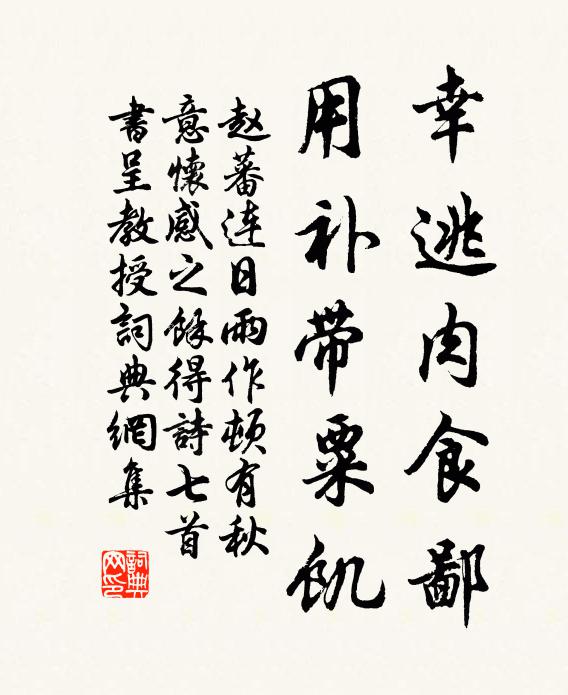 幸逃肉食鄙
用补带粟飢
赵蕃连日雨作顿有秋
意懷感之餘得詩七首
書呈教授詞典網集
詞典網印